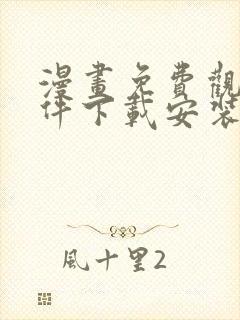 漫畫免費觀
件下載安裝
風十里2